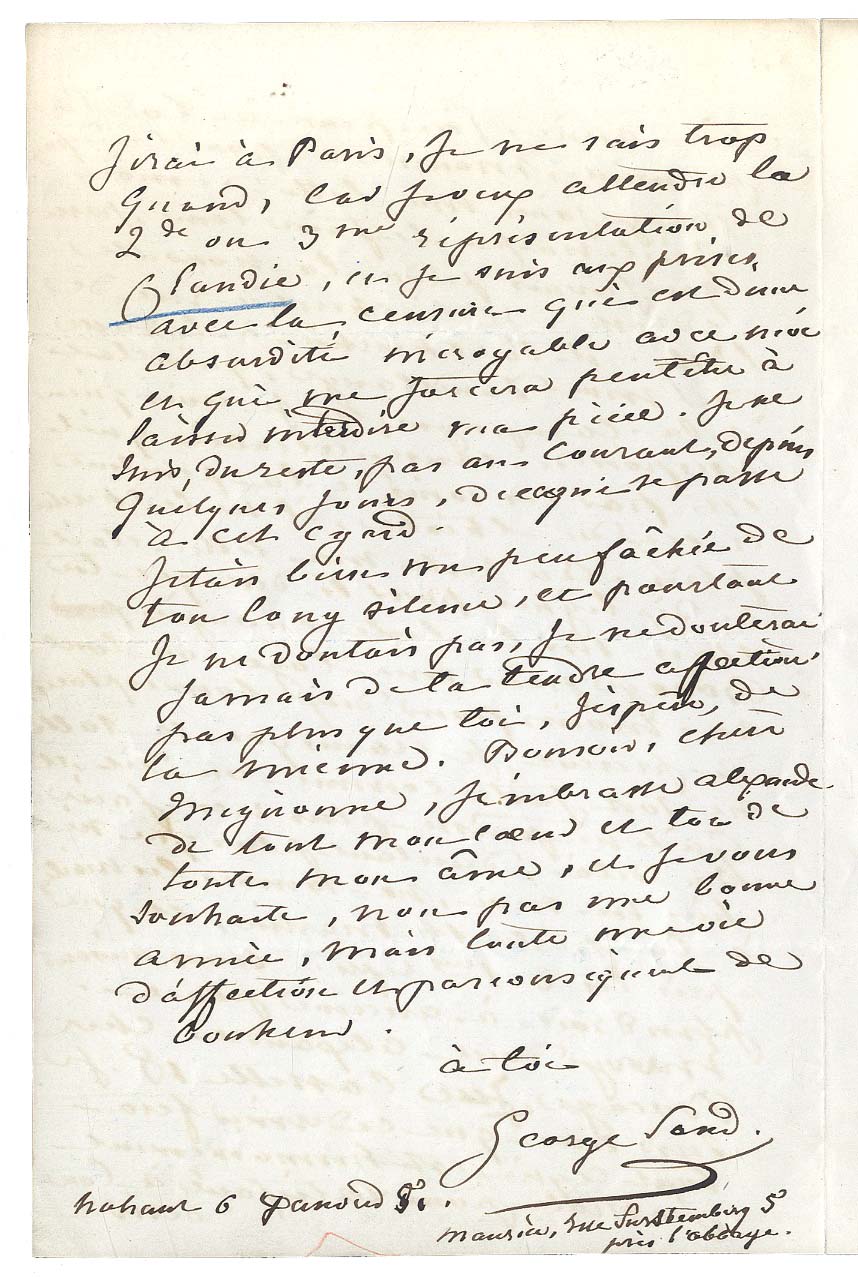 J'irai à Paris, je ne sais trop
quand, car je veux attendre la
2de ou 3me représentation de
Claudie, et je suis aux prises
avec la censure qui est d'une
absurdité incroyable avec moi
et qui me forcera peutêtre à
laisser interdire ma pièce. Je ne
suis, du reste, pas au courant, depuis
quelques jours, de ce qui se passe
à cet égard.
J'étais bien un peu fâchée de
ton long silence, et pourtant
je ne doutais pas, je ne douterai
jamais de ta tendre affection
pas plus que toi, j'espère, de
la mienne. Bonsoir, chère
mignonne, j'embrasse alexandre
de tout mon coeur et toi de
toute mon âme, et je vous
souhaite, non pas une bonne
année, mais toute une vie
d'affection et par conséquent de
bonheur.
à toi
George Sand.
nohant 6 janvier 51.
maurice, rue Furstemberg 5
près l'abbaye.